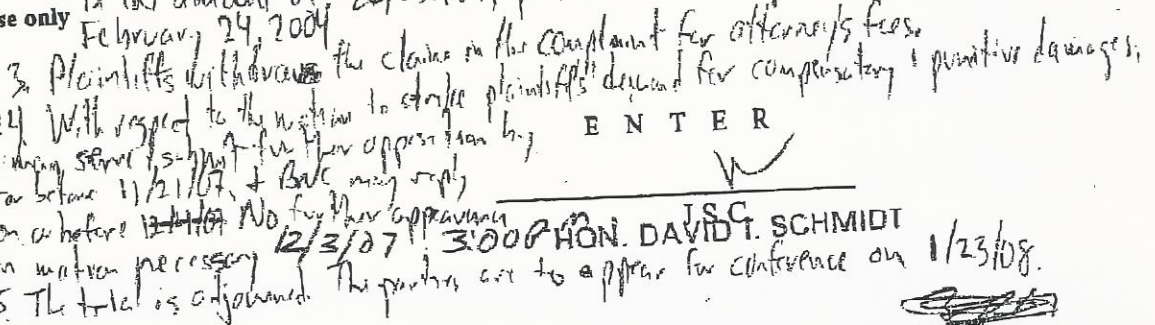 se only
February 24, 2004
3. Plaintiffs withdraw the claims in the complaint for attorney's fees.
4) With respect to the motion to strike plaintiffs' demand for compensatory & punitive damages,
may serve further opposition by
E N T E R
or before 11/21/07, & BNC may reply
on or before 12/4/07 No further appearance
J.S.C.
12/3/07 3:00 PM HON. DAVID I. SCHMIDT
on motion necessary
5. The trial is adjourned. The parties are to appear for conference on 1/23/08.